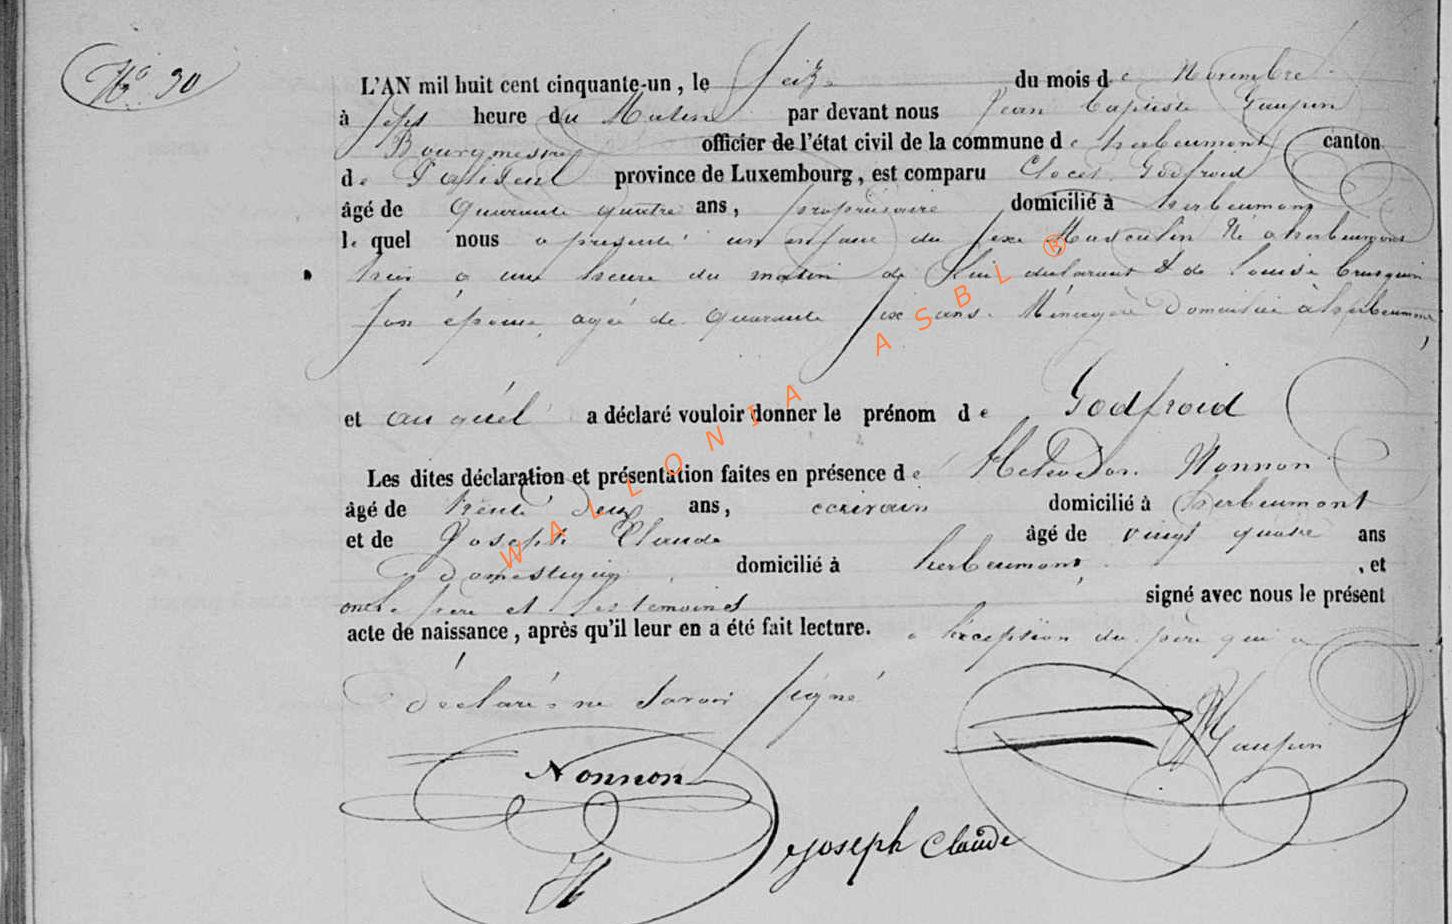 N° 30
L'AN mil huit cent cinquante-un, le Seize du mois de Novembre
à Sept heure du Matin par devant nous Jean Baptiste Gaupin
Bourgmestre officier de l'état civil de la commune de herbeumont canton
de Paliseul province de Luxembourg, est comparu Godfroid
âgé de Quarante quatre ans, propriétaire domicilié à herbeumont
le quel nous a présenté un enfant du sexe Masculin Né a herbeumont
hier a une heure du matin de lui déclarant & de Louise
Son épouse agée de Quarante Six ans Ménagère Domiciliée à herbeumont,
et au quél a déclaré vouloir donner le prénom de Godfroid
Les dites déclaration et présentation faites en présence de Nonnon
âgé de trente deux ans, ecrivain domicilié à herbeumont
et de Joseph Claude âgé de vingt quatre ans
domestique domicilié à herbeumont, et
ont le père et les temoins signé avec nous le présent
acte de naissance, après qu'il leur en a été fait lecture. a l'exception du père qui a
déclaré ne Savoir Signé
Gaupin
Nonnon
Joseph Claude
WALLONIA ASBL ®